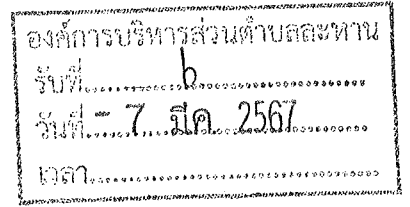 องค์การบริหารส่วนตำบลสะพาน
รับที่ 6
วันที่ - 7 มีค. 2567
เวลา